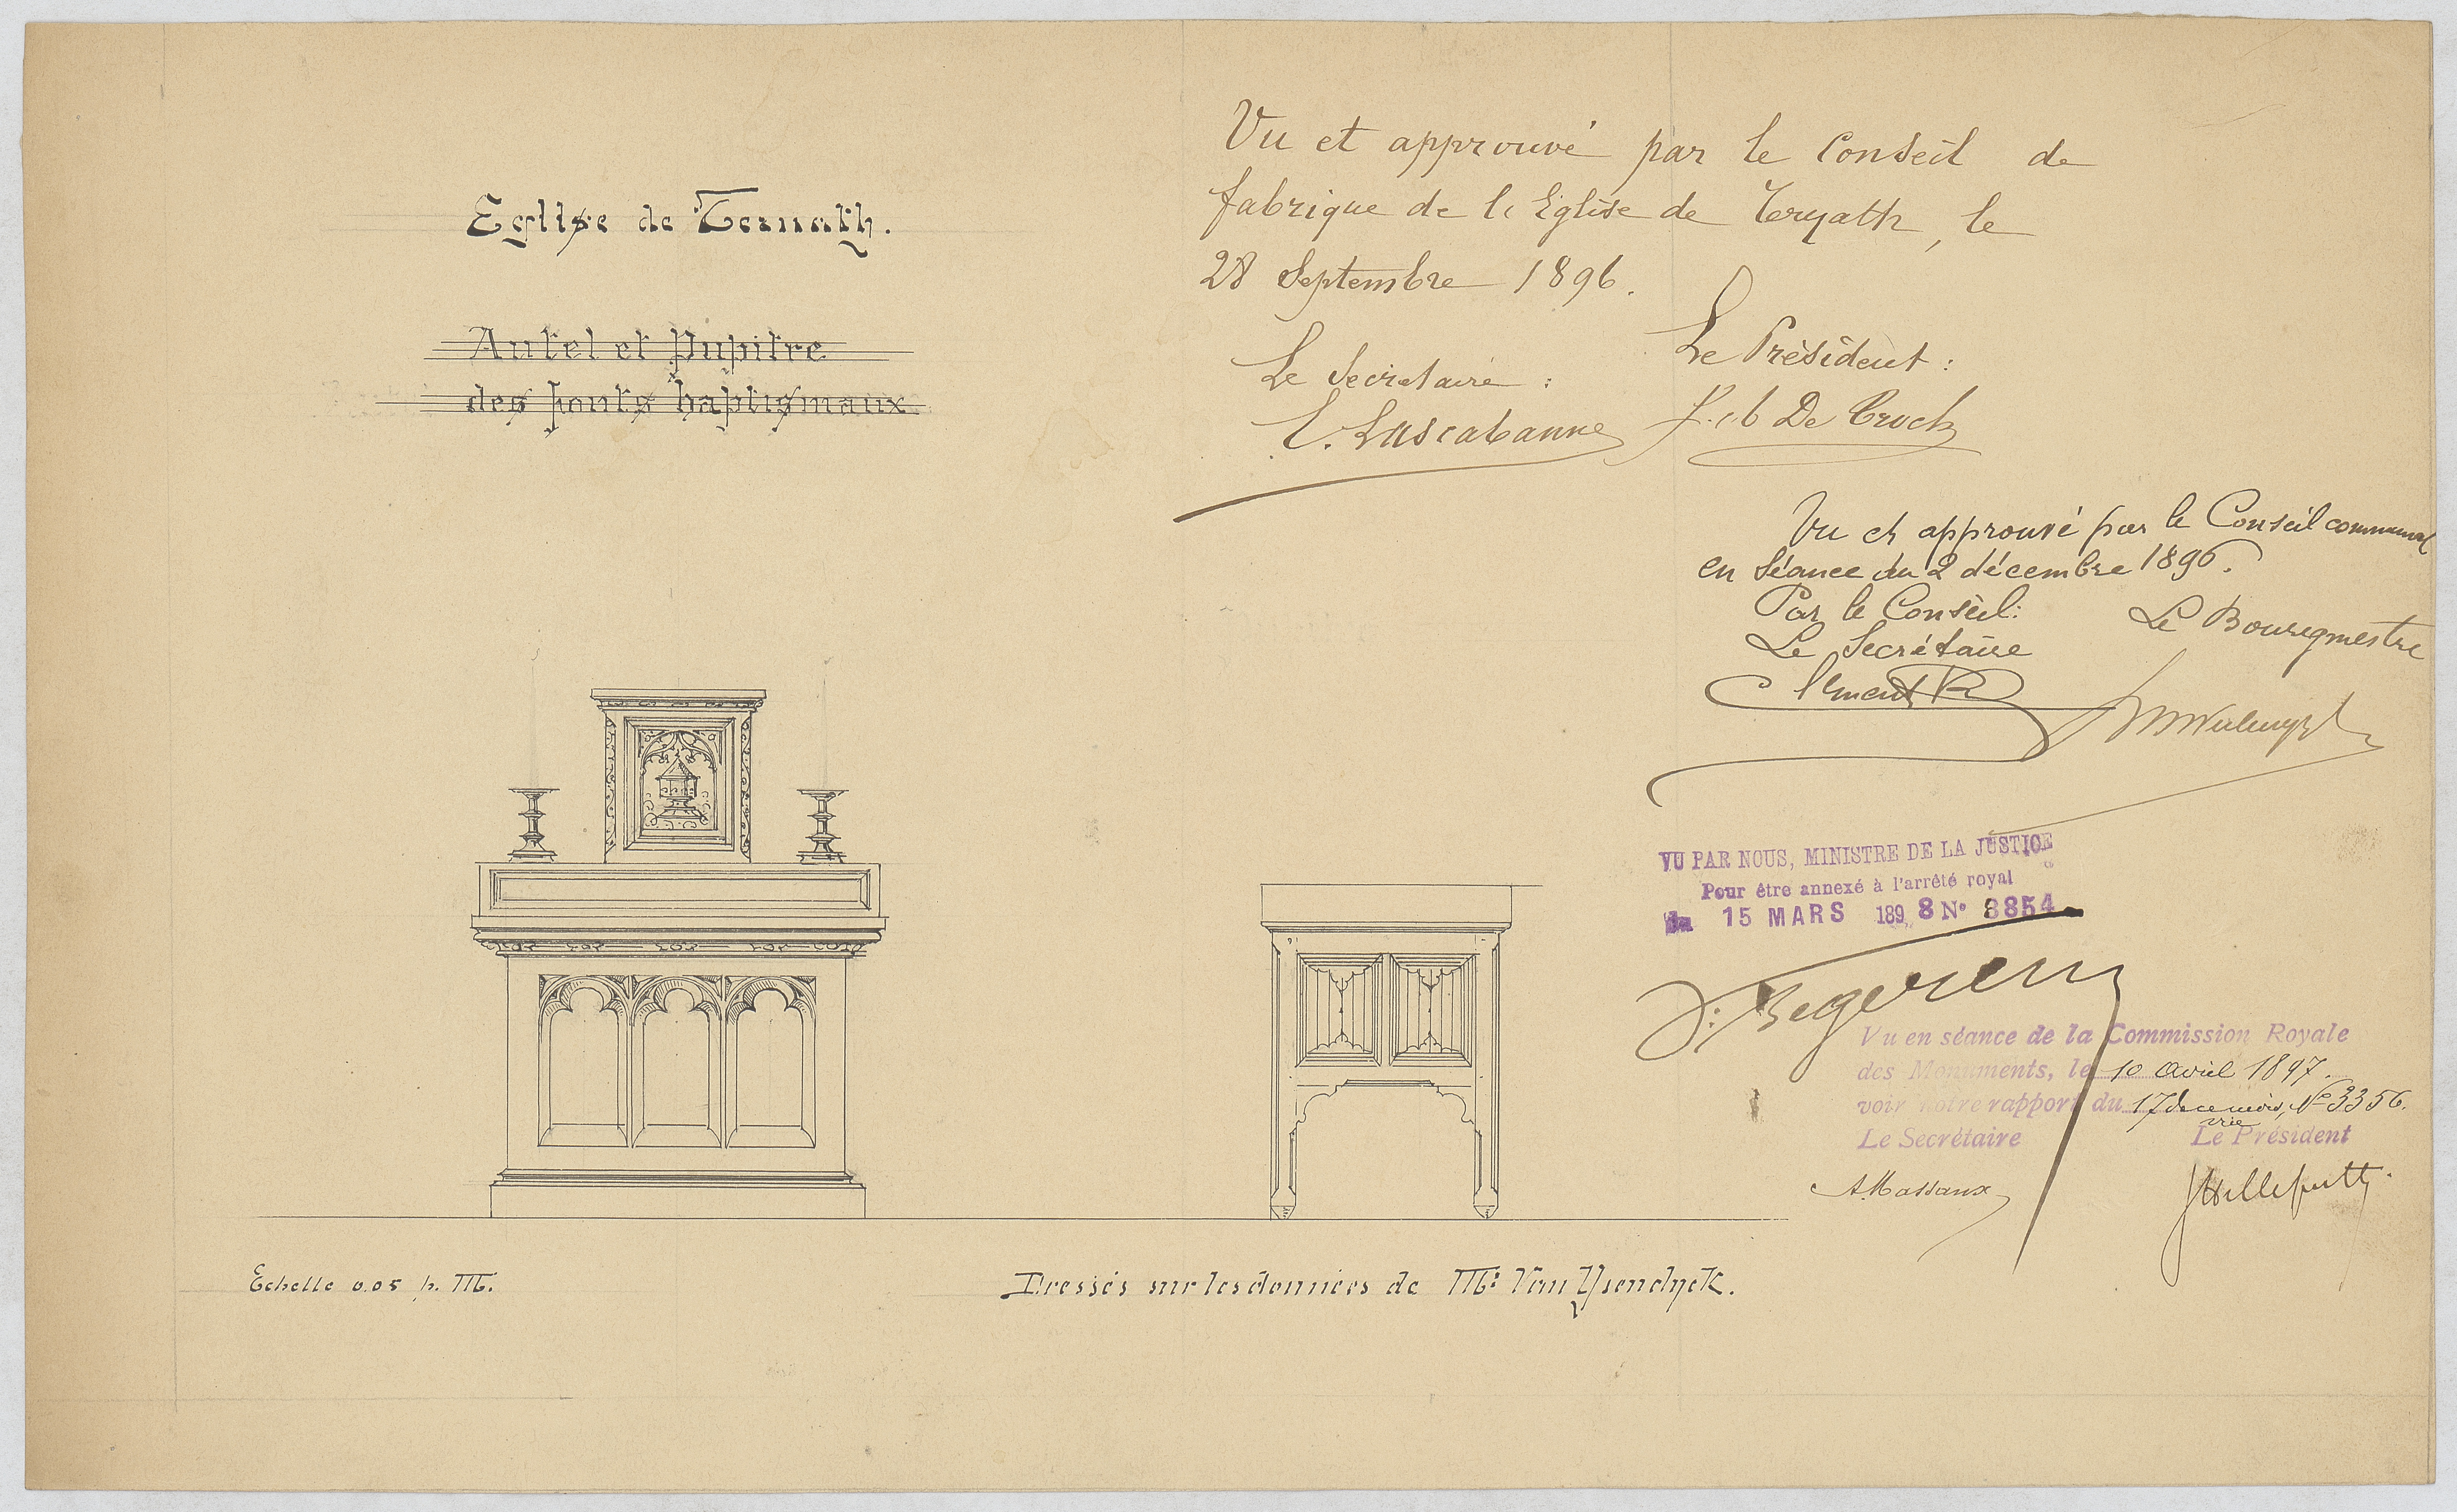 Eglise de Ternath.
Autel et Pupitre
des fonts baptismaux
Vu et approuvé par le Conseil de
fabrique de l'Eglise de Ternath, le
28 Septembre 1896.
Le Secretaire :
Le Président :
De Croek
Vu et approuvé par le Conseil communal
en Séance du 2 décembre 1896.
Par le Conseil:
Le Secrétaire
Le Bourgmestre
VU PAR NOUS, MINISTRE DE LA JUSTICE
Pour être annexé à l'arrêté royal
du 15 MARS 1898 N° 8854
Vu en séance de la Commission Royale
des Monuments, le 10 avril 1897.
voir notre rapport du 17 de ce mois, N° 3356.
Le Secrétaire
Le Président
A. Massaux
Helleputte
Echelle 0.05 p. M.
Dressés sur les données de Mr Van Ysendyck.